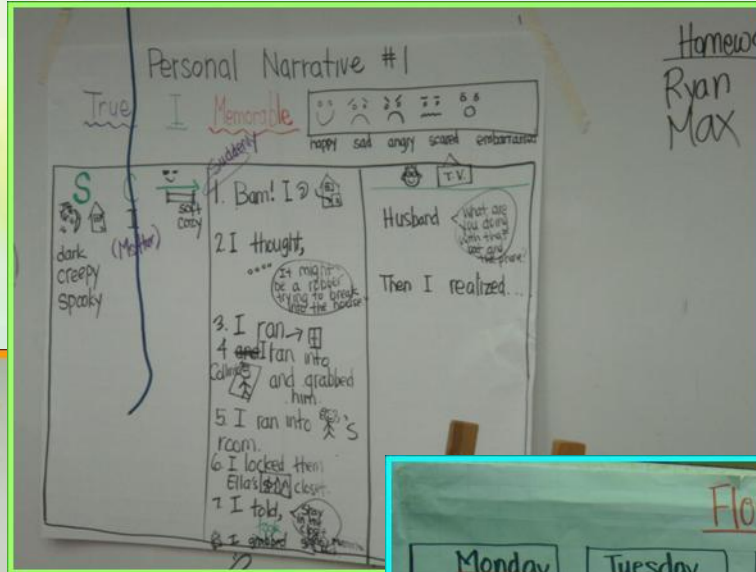 Personal Narrative #1
True I Memorable
happy sad angry scared embarrassed
S C
I
(Mother)
soft
cozy
dark
creepy
spooky
Suddenly
1. Bam! I
2 I thought,
It might
be a robber
trying to break
into the house.
3. I ran
4 and I ran into
and grabbed
him.
5. I ran into 's
room.
6. I locked them
Ella's closet.
7 I told,
Stay
in the
closet
8. I grabbed
T.V.
Husband
What are
you doing
with that
bat and
the phone?
Then I realized...
Homewo
Ryan
Max
Flo
Monday
Tuesday